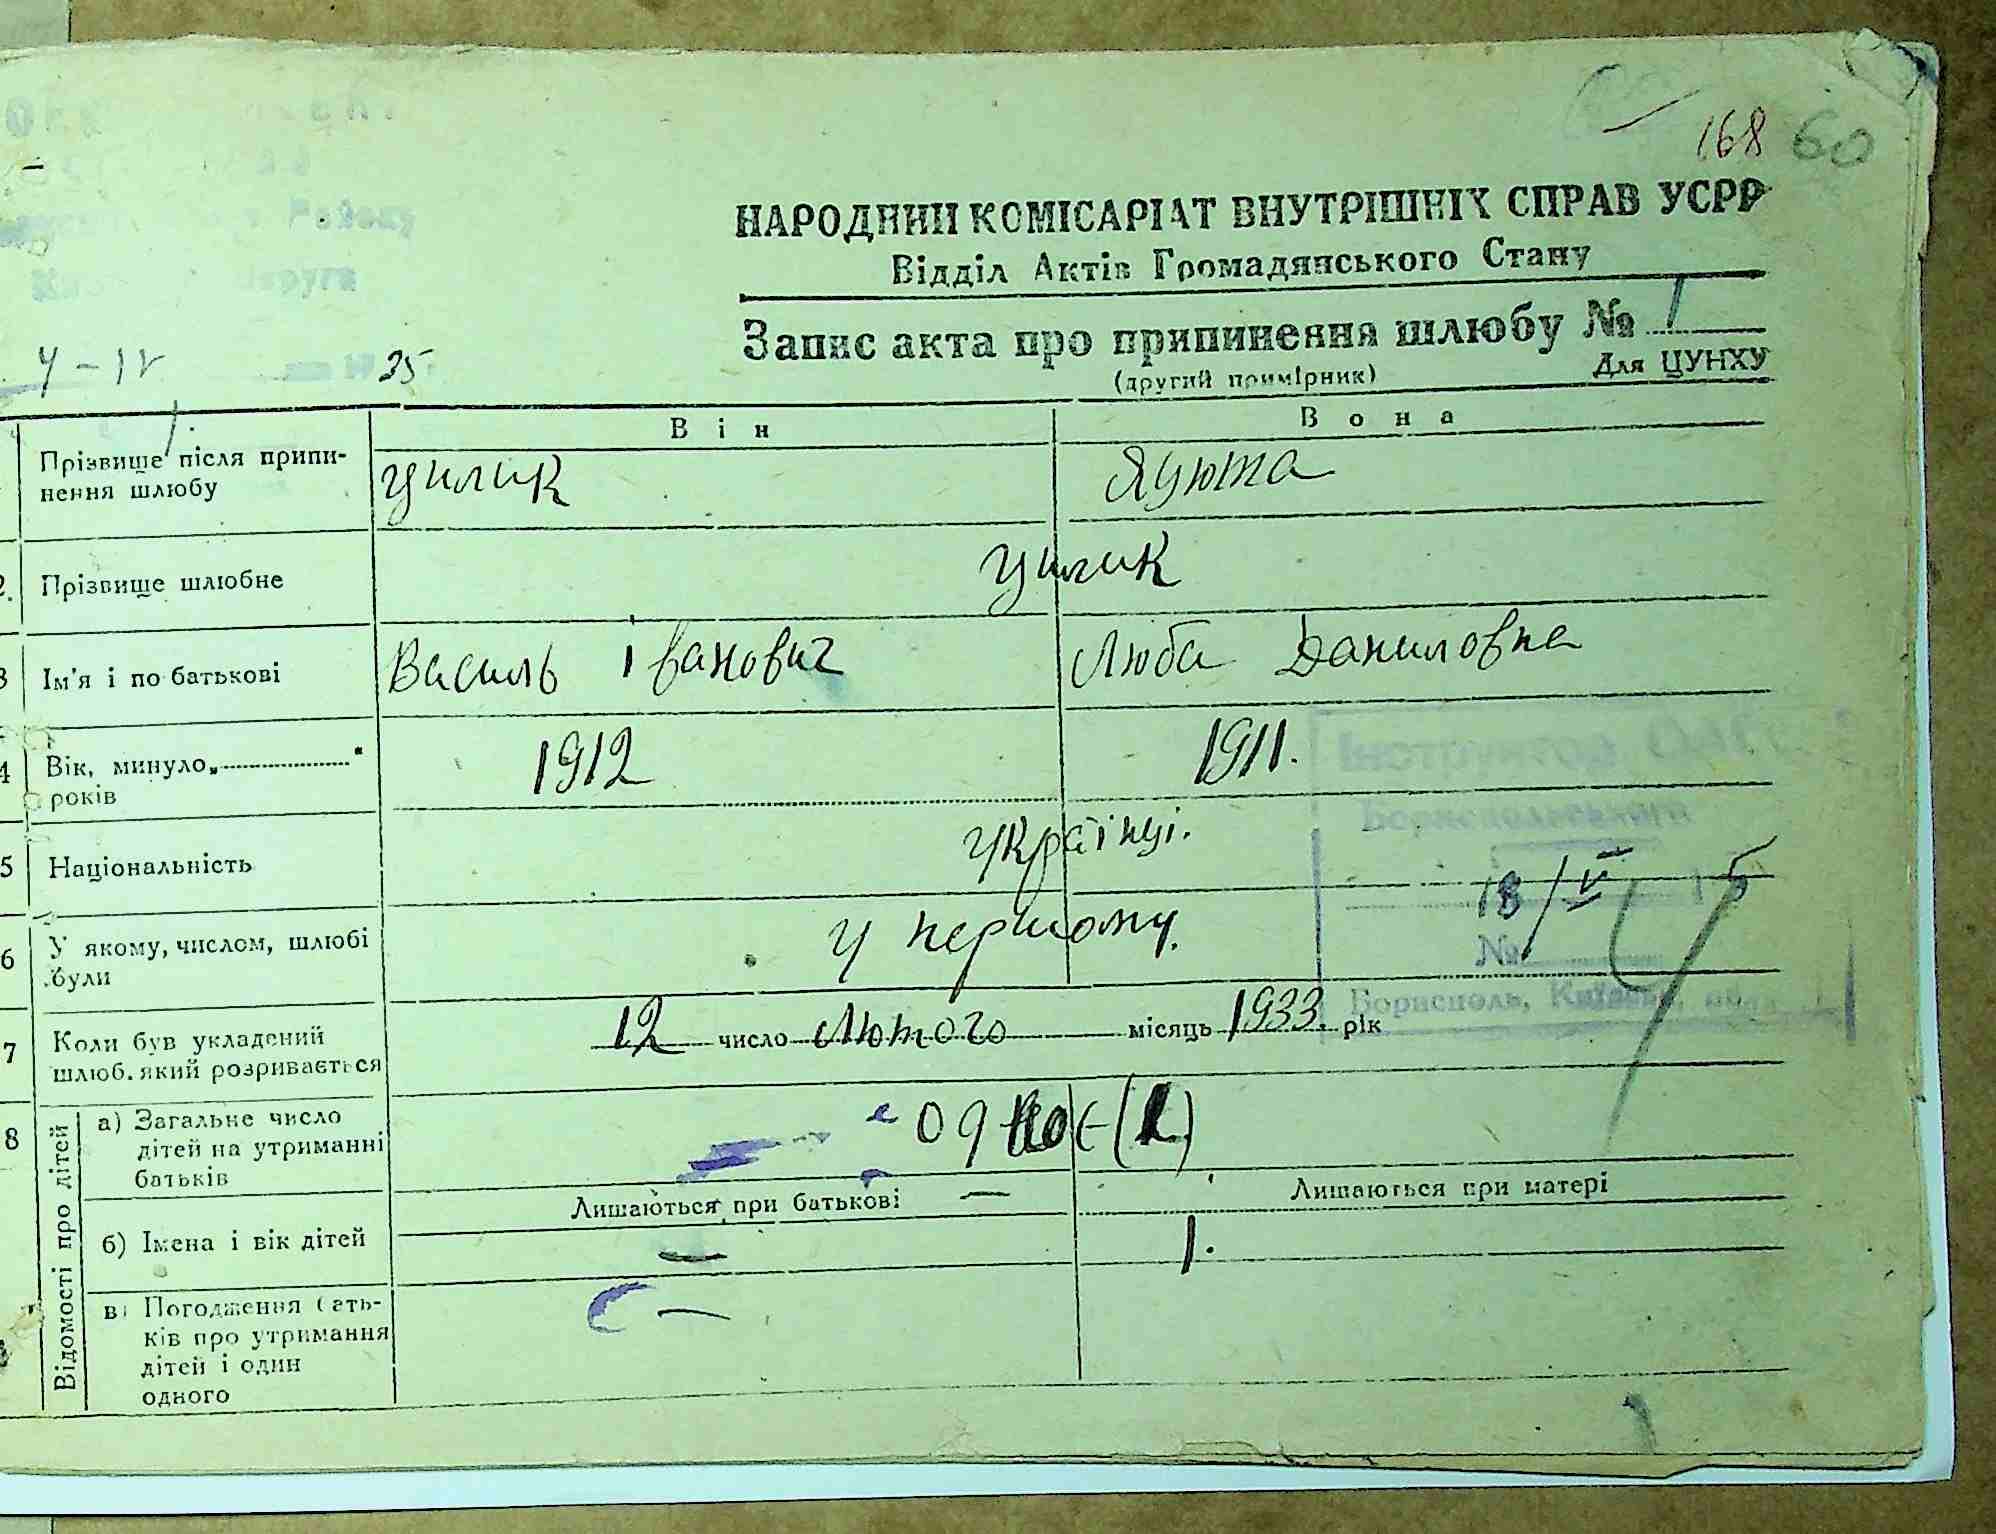 168 60
НАРОДНИЙ КОМІСАРІАТ ВНУТРІШНІХ СПРАВ УСРР
Відділ Актів Громадянського Стану
Запис акта про припинення шлюбу № 1
(другий примірник) Для ЦУНХУ
Району
Округа
4-IV 35
Він Вона
Прізвище після припи-
нення шлюбу
Цилик Яцюта
2. Прізвище шлюбне Цилик
3 Ім'я і по батькові Василь Іванович Люба Даниловна
4 Вік, минуло „ "
років
1912 1911.
Інструктор
Бориспольського
5 Національність Українці.
18/V 5
№
6 У якому, числом, шлюбі
були
у першому.
Бориспіль, Київськ. обл.
7 Коли був укладений
шлюб, який розривається
12 число Лютого місяць 1933. рік
8 Відомості про дітей
а) Загальне число
дітей на утриманні
батьків
одноє (1)
Лишаються при батькові — Лишаються при матері
б) Імена і вік дітей — 1.
в) Погодження бать-
ків про утримання
дітей і один
одного
—